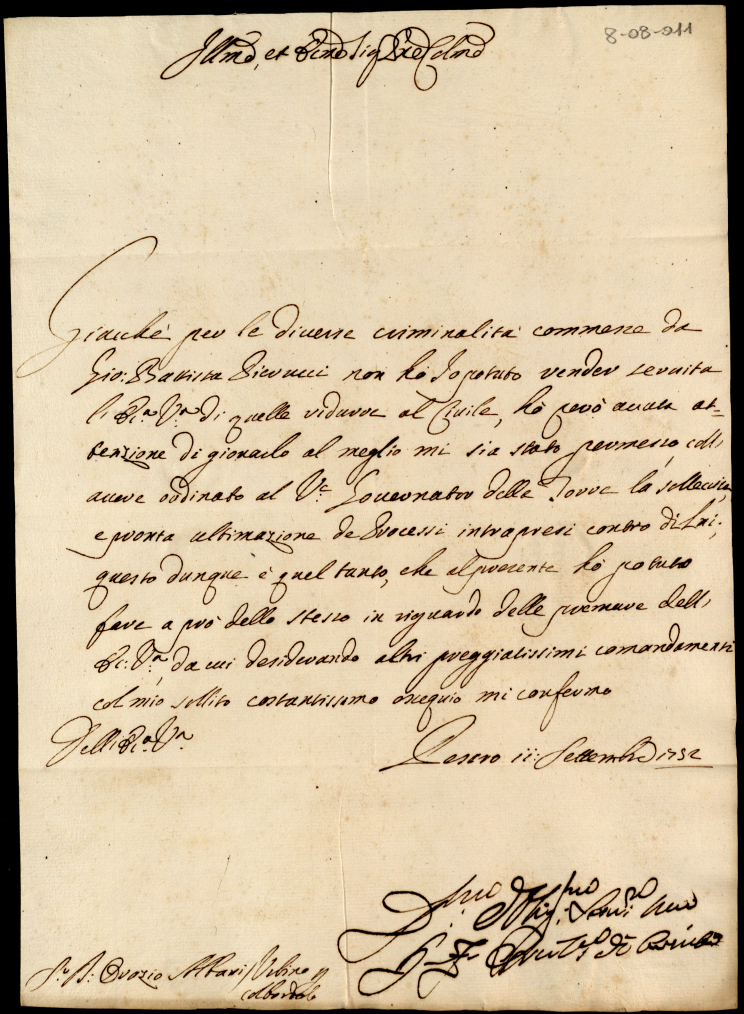 8-08-011
Illmo, et Ecmo Sig Pne Colmo
Giacché per le diverse criminalità commesse da
Gio: Battista Pierucci non hò Io potuto render servita
l' Ec.a V.ra di quelle ridurre al Civile, hò però avuta at=
tenzione di giovarlo al meglio mi sia stato permesso, coll'
avere ordinato al V.e Governator delle Torre la sollecita,
e pronta ultimazione de Processi intrapresi contro di Lui;
questo dunque è quel tanto, che al presente hò potuto
fare a prò dello stesso in riguardo delle premure dell'
Ec: V.ra da cui desiderando altri preggiatissimi comandamenti
col mio sollito costantissimo ossequio mi confermo
Dell' Ec.a V.ra
Pesaro 11: Settembre 1732
D.mo Oblig.mo Serv.re
Sr. D: Orazio Albani / Urbino p
colbordolo